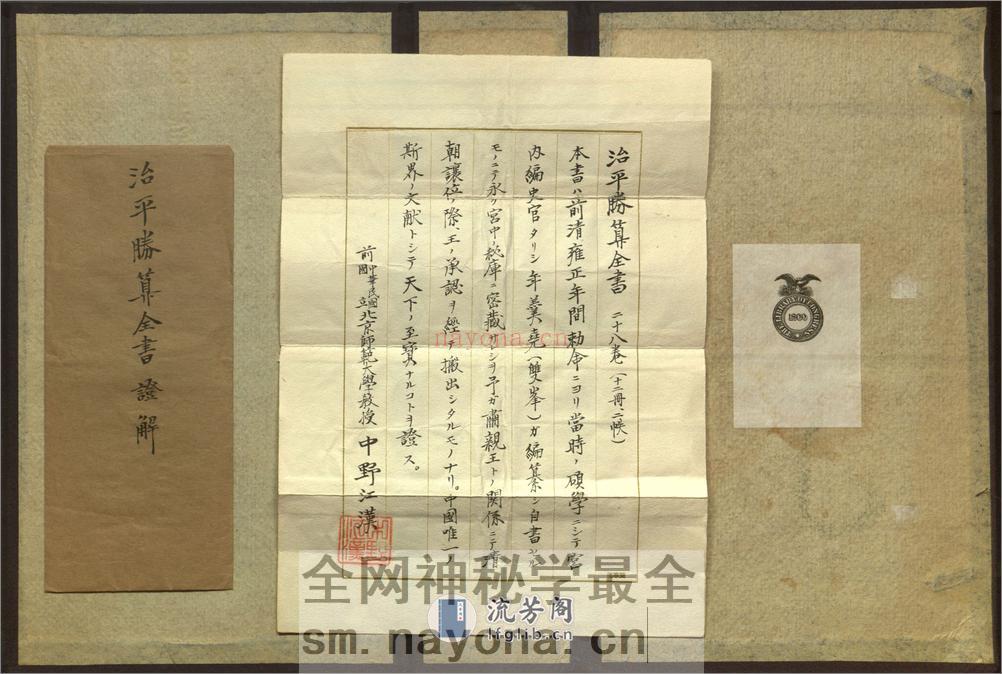 治平勝算全書 證解
治平勝算全書 二十八卷(十二冊、二帙)
本書ハ前清雍正年間勅命ニヨリ當時ノ碩學ニシテ宮
内編史官タリシ年羹堯(雙峯)ガ編纂シ自書シタル
モノニテ永ク宮中ノ秘庫ニ密藏サレシヲ予ガ肅親王トノ関係ニテ清
朝讓位ノ際、王ノ承認ヲ經テ搬出シタルモノナリ。中國唯一ノ
斯界ノ文献トシテ天下ノ至寶ナルコトヲ證ス。
前中華民國國立北京師範大學教授 中野江漢
THE LIBRARY OF CONGRESS
1800
nayona.cn
全网神秘学最全
流芳阁
lfglib.cn
sm.nayona.cn